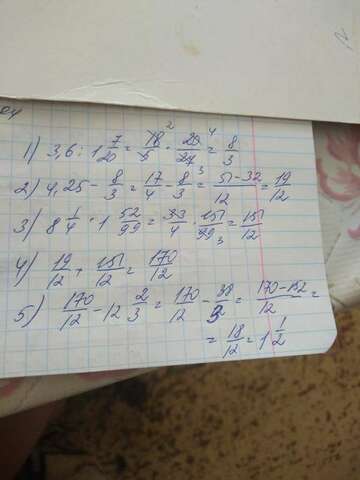 1) 3,6 : 1 7/20 = 18/5 · 20/27 = 8/3
2) 4,25 - 8/3 = 17/4 - 8/3 = 51-32/12 = 19/12
3) 8 1/4 · 1 52/99 = 33/4 · 151/99 = 151/12
4) 19/12 + 151/12 = 170/12
5) 170/12 - 12 2/3 = 170/12 - 38/3 = 170-152/12 =
= 18/12 = 1 1/2